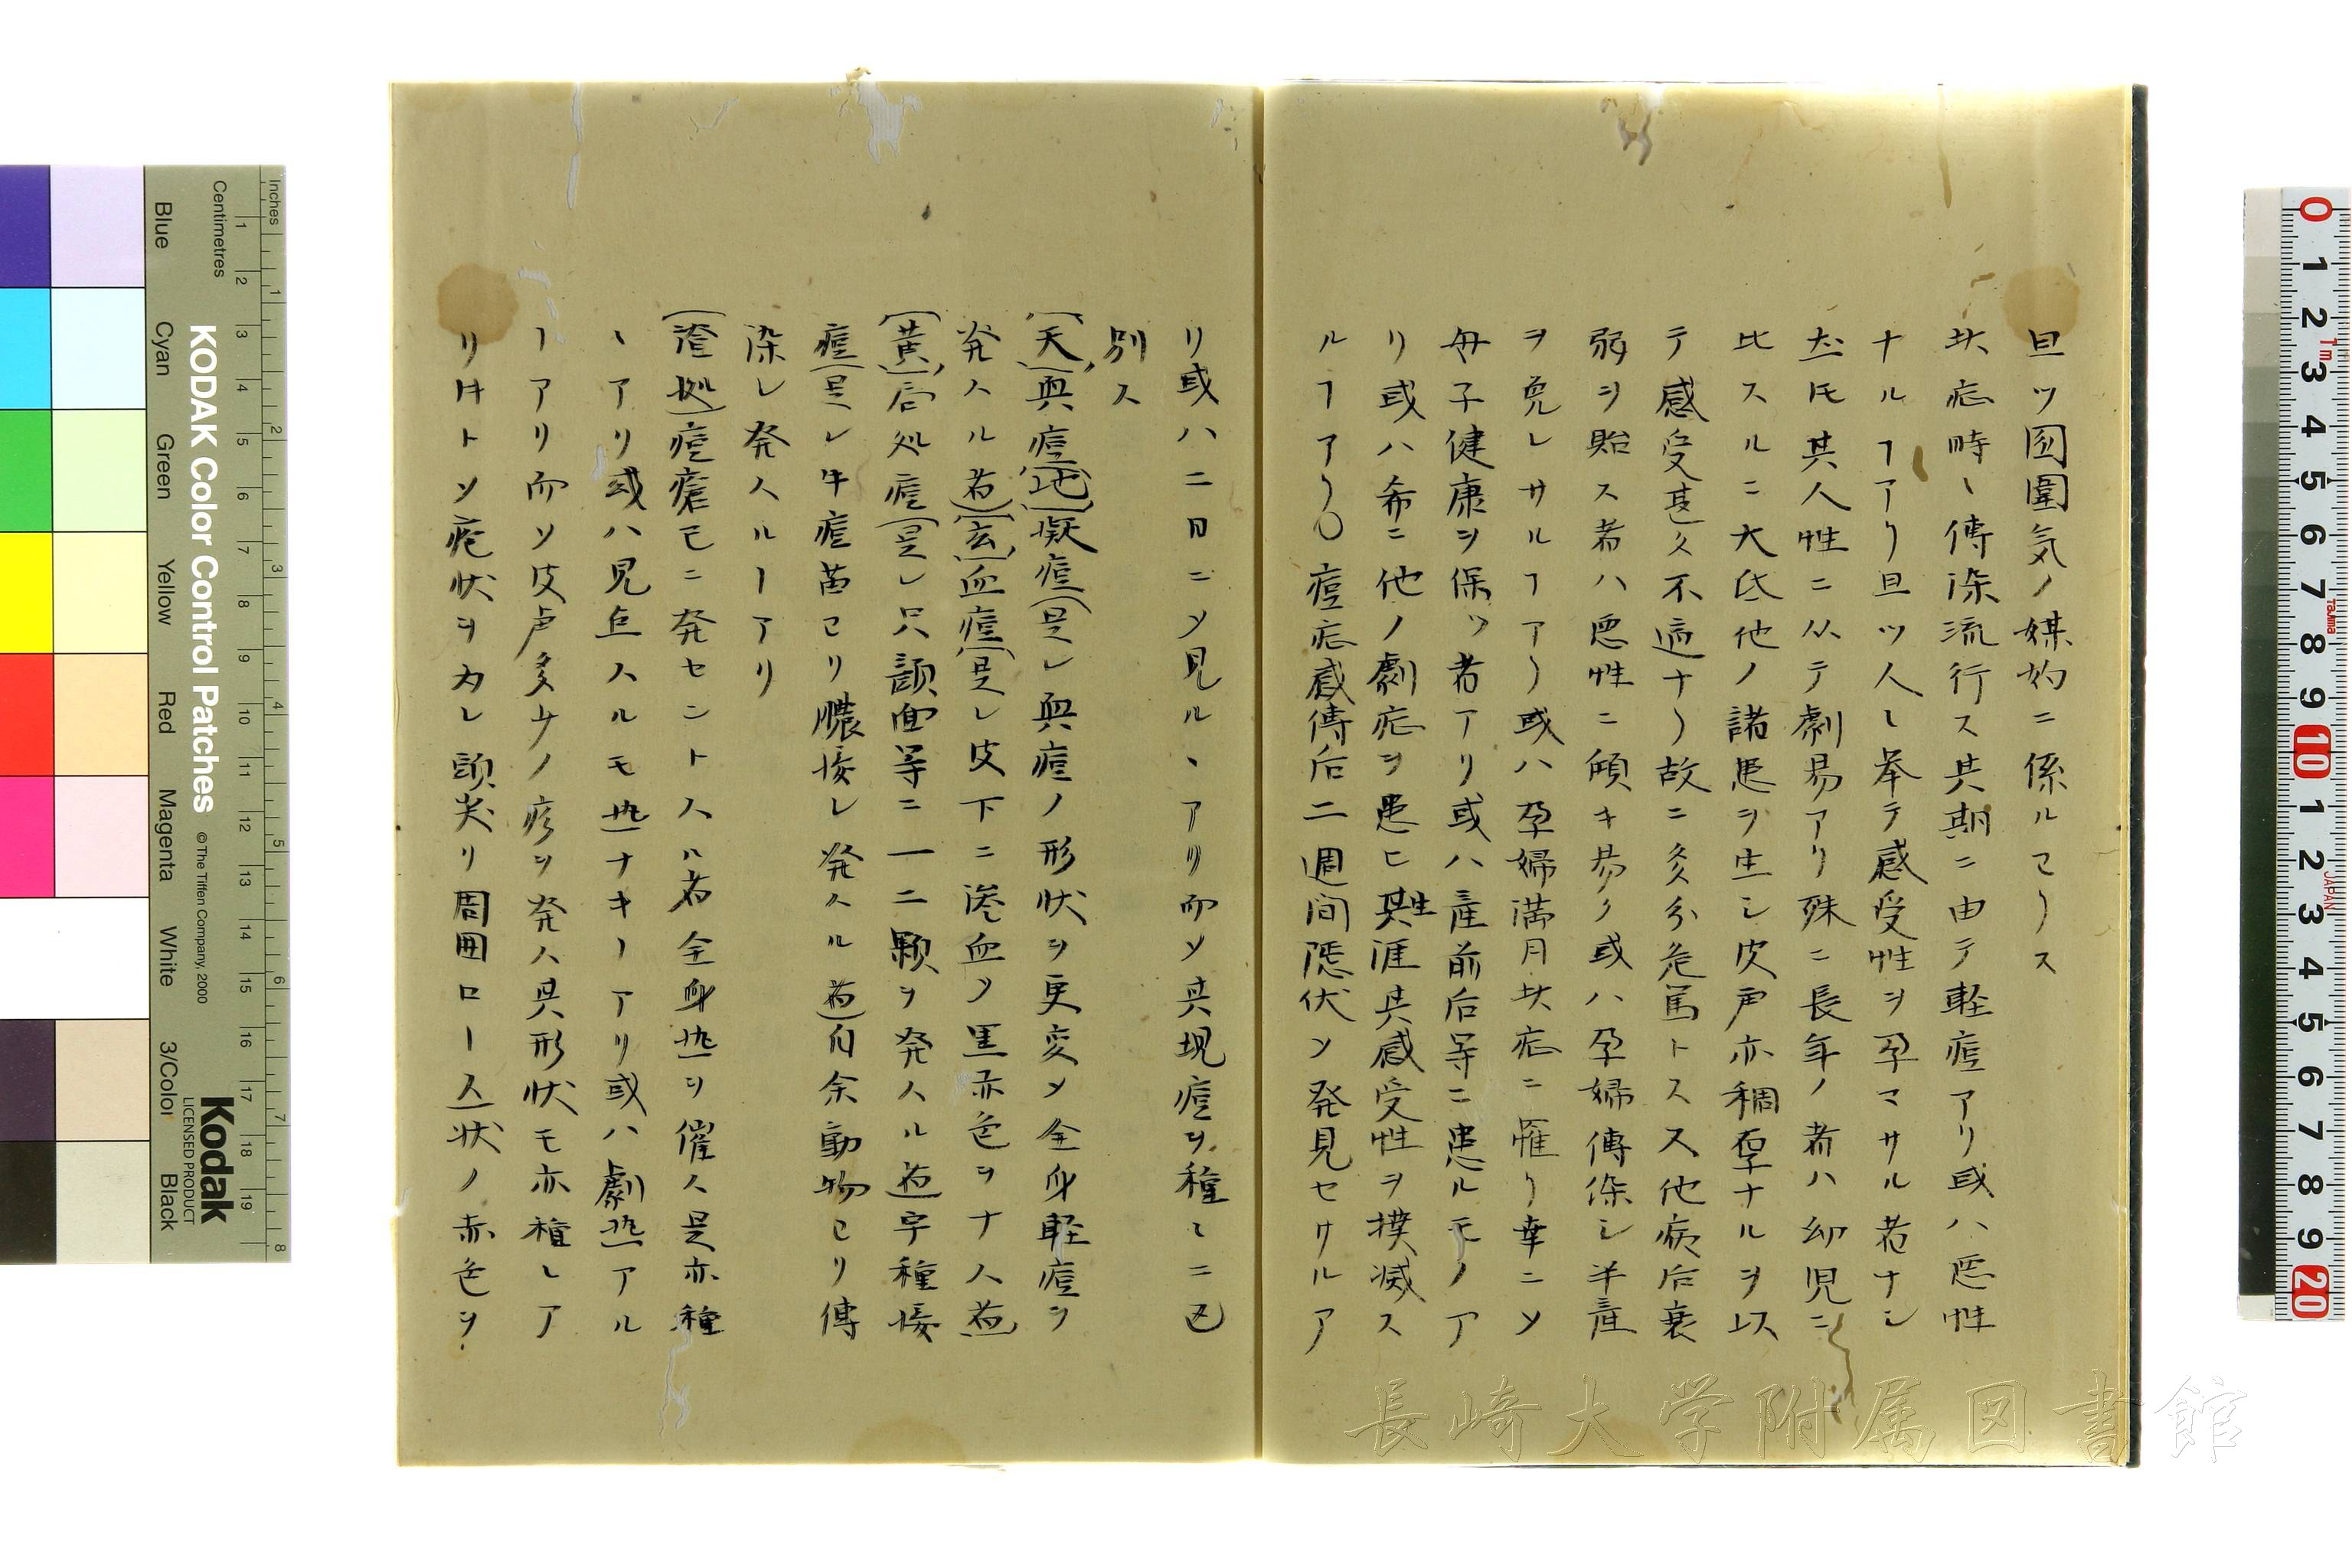 且ツ囡圍気ノ媒妁ニ係ルヿリス
此症時〻傳染流行ス其期ニ由テ軽痘アリ或ハ悪性
ナルヿアリ且ツ人〻挙テ感受性ヲ孕マサル者ナシ
𪜈其人性ニ从テ劇易アリ殊ニ長年ノ者ハ幼児ニ
比スルニ大氐他ノ諸患ヲ生シ皮膚亦稠密ナルヲ以
テ感受甚タ不適ナリ故ニ多分危篤トス又他病后衰
弱ヲ貽ス者ハ悪性ニ傾キ易ク或ハ孕婦傳染シ半産
ヲ免レサルヿアリ或ハ孕婦満月此症ニ罹リ幸ニ乄
母子健康ヲ保ツ者アリ或ハ産前后等ニ患ルモノア
リ或ハ希ニ他ノ劇症ヲ患ヒ其生涯其感受性ヲ撲滅ス
ルヿアリ○痘症感傳后二週間隠伏乄発見セサルア
リ或ハ二日ニ乄見ル、アリ而乄其現痘ヲ種〻ニ区
別ス
(天)眞痘(地)擬痘(是)レ眞痘ノ形状ヲ更変乄全身軽痘ヲ
発スル者(玄)血痘(是)レ皮下ニ滲血乄黒赤色ヲナス者
(黄)局処痘(是)レ只顔面等ニ一二顆ヲ発スル者宇種接
痘(是)レ牛痘苗ヨリ膿接レ発スル者自余動物ヨリ傳
染レ発スルヿアリ
(諸処)痘瘡已ニ発セントスル者全身熱ヲ催ス是亦種
〻アリ或ハ見点スルモ熱ナキヿアリ或ハ劇熱アル
ヿアリ而乄皮膚多少ノ疹ヲ発ス其形状モ亦種〻ア
リ凡ト乄疣状ヲ為レ頭尖リ周囲ロース状ノ赤色ヲ
長崎大学附属図書館
KODAK Color Control Patches
© The Tiffen Company, 2000
Kodak
LICENSED PRODUCT
Inches
Centimetres
Blue
Cyan
Green
Yellow
Red
Magenta
White
3/Color
Black
1 2 3 4 5 6 7 8
1 2 3 4 5 6 7 8 9 10 11 12 13 14 15 16 17 18 19
0 1 2 3 4 5 6 7 8 9 10 1 2 3 4 5 6 7 8 9 20
1m
Tajima
JAPAN